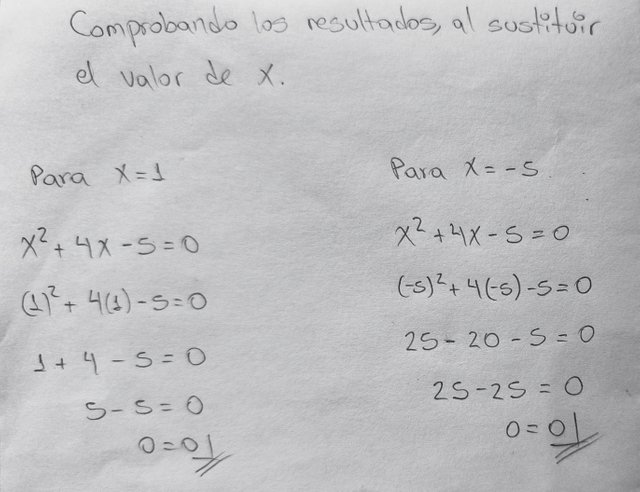 Comprobando los resultados, al sustituir
el valor de x.
Para x=1
x²+4x-5=0
(1)²+4(1)-5=0
1+4-5=0
5-5=0
0=0
Para x=-5
x²+4x-5=0
(-5)²+4(-5)-5=0
25-20-5=0
25-25=0
0=0